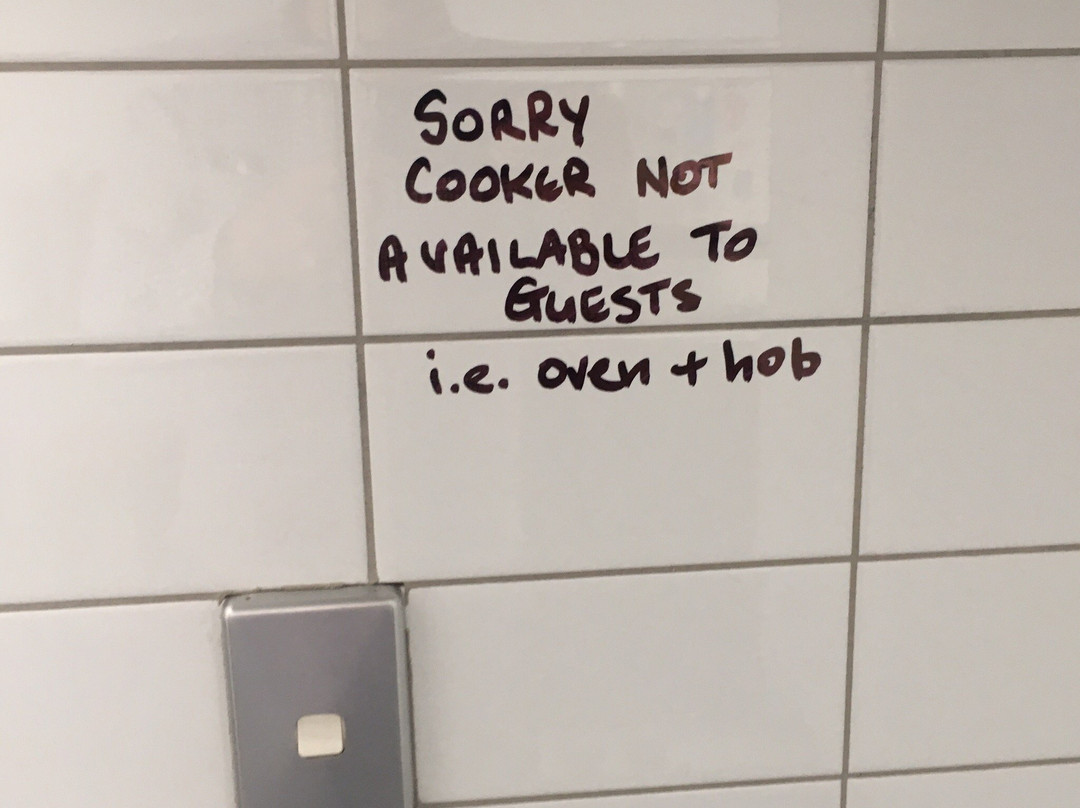 SORRY
COOKER NOT
AVAILABLE TO
GUESTS
i.e. oven + hob